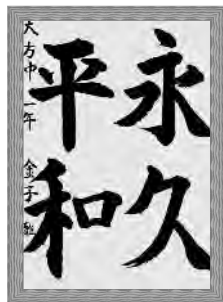 永久
平和
大方中 一年 金子